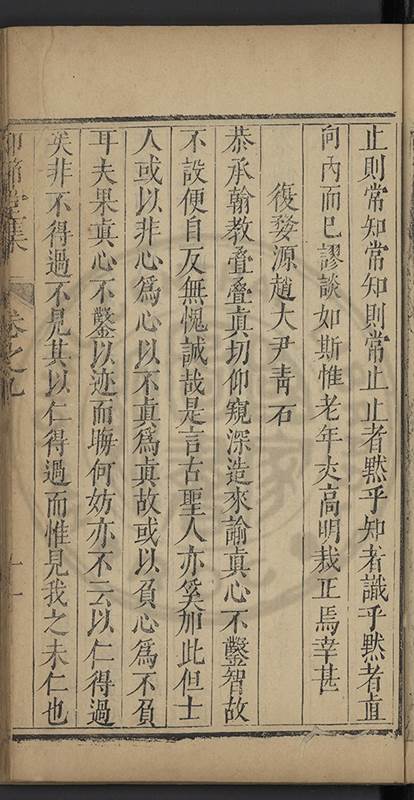 止則常知常知則常止止者默乎知者識乎默者直
向內而巳謬談如斯惟老年丈高明裁正焉幸甚
復婺源趙大尹靑石
恭承翰教疊疊眞切仰窺深造來諭眞心不鑿智故
不設便自反無愧誠哉是言古聖人亦奚加此但士
人或以非心爲心以不眞爲眞故或以負心爲不負
耳夫果眞心不鑿以迹而誨何妨亦不云以仁得過
矣非不得過不見其以仁得過而惟見我之未仁也
卷之九